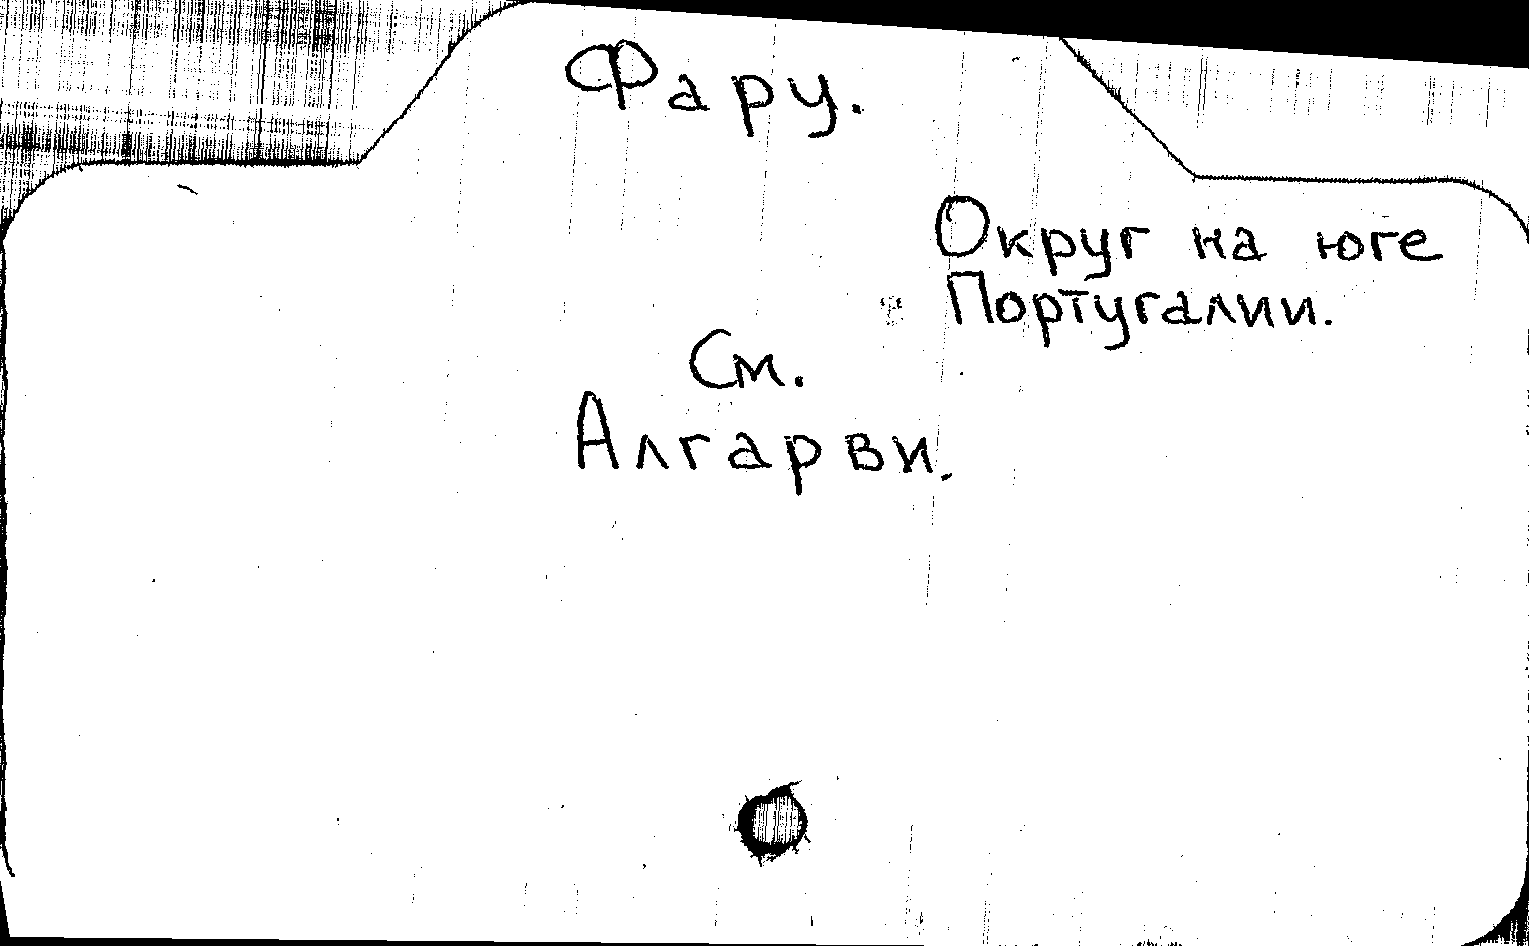 Фару.
Округ на юге
Португалии.
См.
Алгарви.